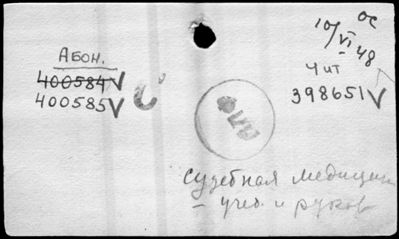 ос
10/VI 48
АБОН.
400584 V
400585 V
Чит
398651 V
судебная медицин
– учеб. и руков